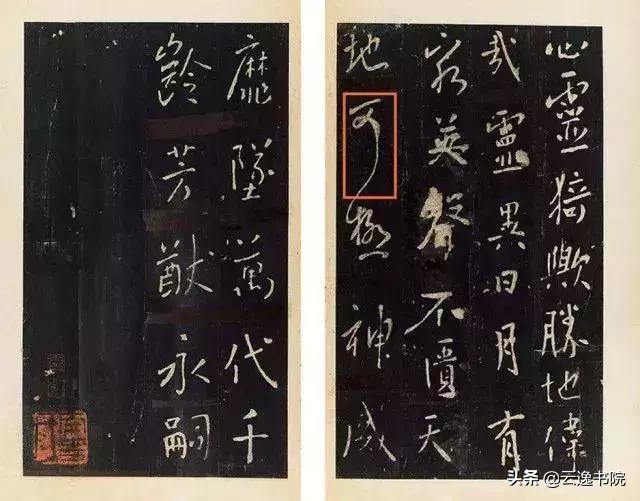 心靈猗歟勝地偉
哉靈異日月有
窮英聲不匱天
地可極神威
靡墜萬代千
齡芳猷永嗣
头条 @云逸书院